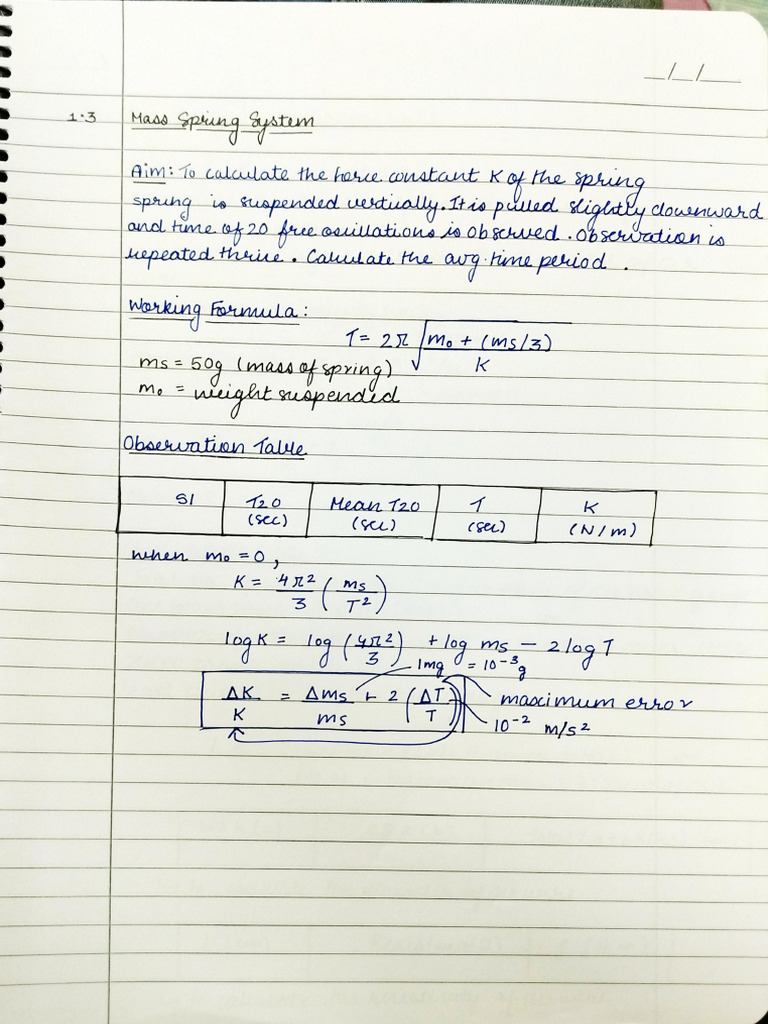 _/_/__
1.3 Mass Spring System
Aim: To calculate the force constant K of the spring
spring is suspended vertically. It is pulled slightly downward
and time of 20 free oscillations is observed. Observation is
repeated thrice. Calculate the avg. time period.
Working Formula:
T = 2π √(m₀ + (ms/3) / K)
ms = 50g (mass of spring)
m₀ = weight suspended
Observation Table
Sl T20 (sec) Mean T20 (sec) T (sec) K (N/m)
when m₀ = 0,
K = 4π²/3 (ms/T²)
log K = log (4π²/3) + log ms - 2 log T
1mg = 10⁻³g
ΔK/K = Δms/ms + 2 (ΔT/T) maximum error
10⁻² m/s²